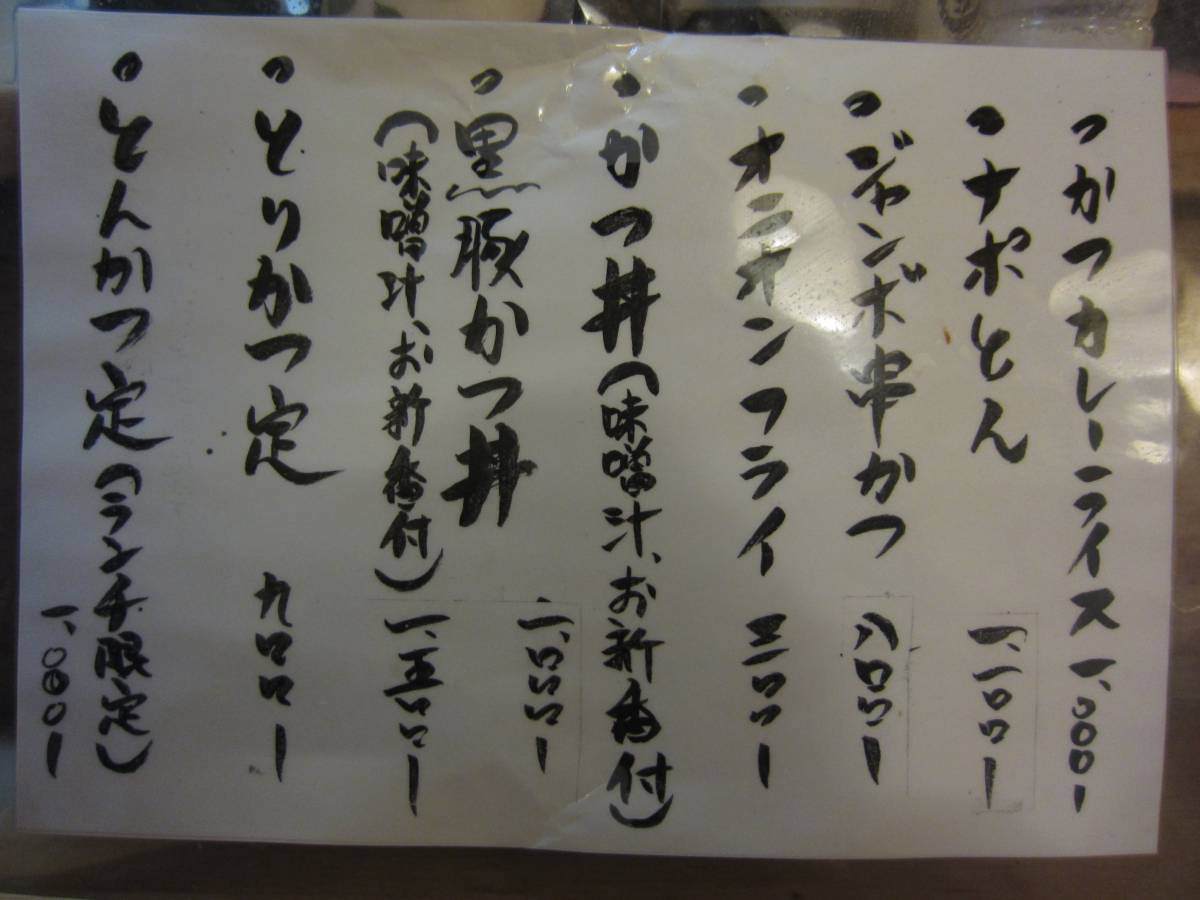 ・かつカレーライス 一、〇〇〇ー
・ナポとん 一、一〇〇ー
・ジャンボ串かつ 八〇〇ー
・オニオンフライ 三〇〇ー
・かつ丼(味噌汁、お新香付)
一、〇〇〇ー
・黒豚かつ丼
(味噌汁、お新香付) 一、五〇〇ー
・とりかつ定 九〇〇ー
・とんかつ定(ランチ限定)
一、〇〇〇ー